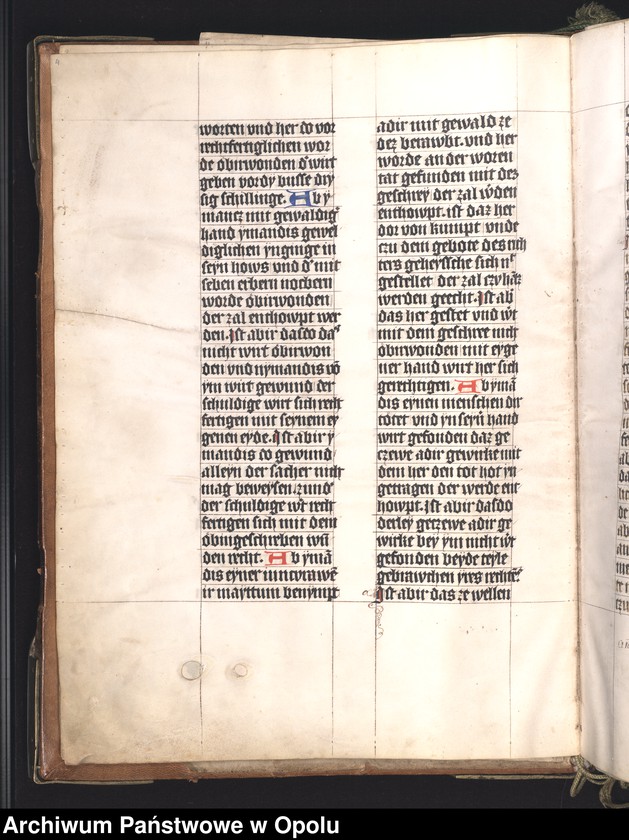 worten vnd her do vor
rechtfertiglichen wor
de obirwonden d' wirt
geben vor dy busse dry
sig schillinge. Ab y
mancz mit gewaldig'
hand ymandis gewel
diglichen ynginge in
seyn hows vnd d' mit
seben erbern nocbern
worde obirwonden
der zal enthowpt wer
den. Ist abir daſ do da'
nicht wirt obirwon
den vnd nymandis vō
ym wirt gewund der
schuldige wirt sich recht
fertigen mit seynem ey
genen eyde. Ist abir y
mandis do gewund
alleyn der sacher nich
mag beweysen
der schuldige w't recht
fertigen sich mit dem
obingeschreben
den recht. Ab ymā
dis eyner iuncvrawē
ir mayttum benympt
adir mit gewald ze
der berawbt. vnd her
worde an der woren
tat gefunden mit des
geschrey der zal w'den
enthowpt. ist daz her
dor von kumpt vnde
czu dem gebote des rich
ters geheyssche sich n'
gestellet der zal
werden geecht. Ist ab'
das her gestet vnd w't
mit dem geschree nich
obirwonden mit eyge
ner hand wirt her sich
gerechtigen. Ab ymā
dis eynen menschen dir
totet vnd yn seyn' hand
wirt gefonden daz ge
czewe adir gewirke mit
dem her den tot hot yn
getragen der werde ent
howpt. Ist abir daſ do
derley getzewe adir ge
wirke bey ym nicht w't
gefonden beyde teyle
gebrawchen yres rechtes.
Ist abir das ze wellen
Archiwum Państwowe w Opolu